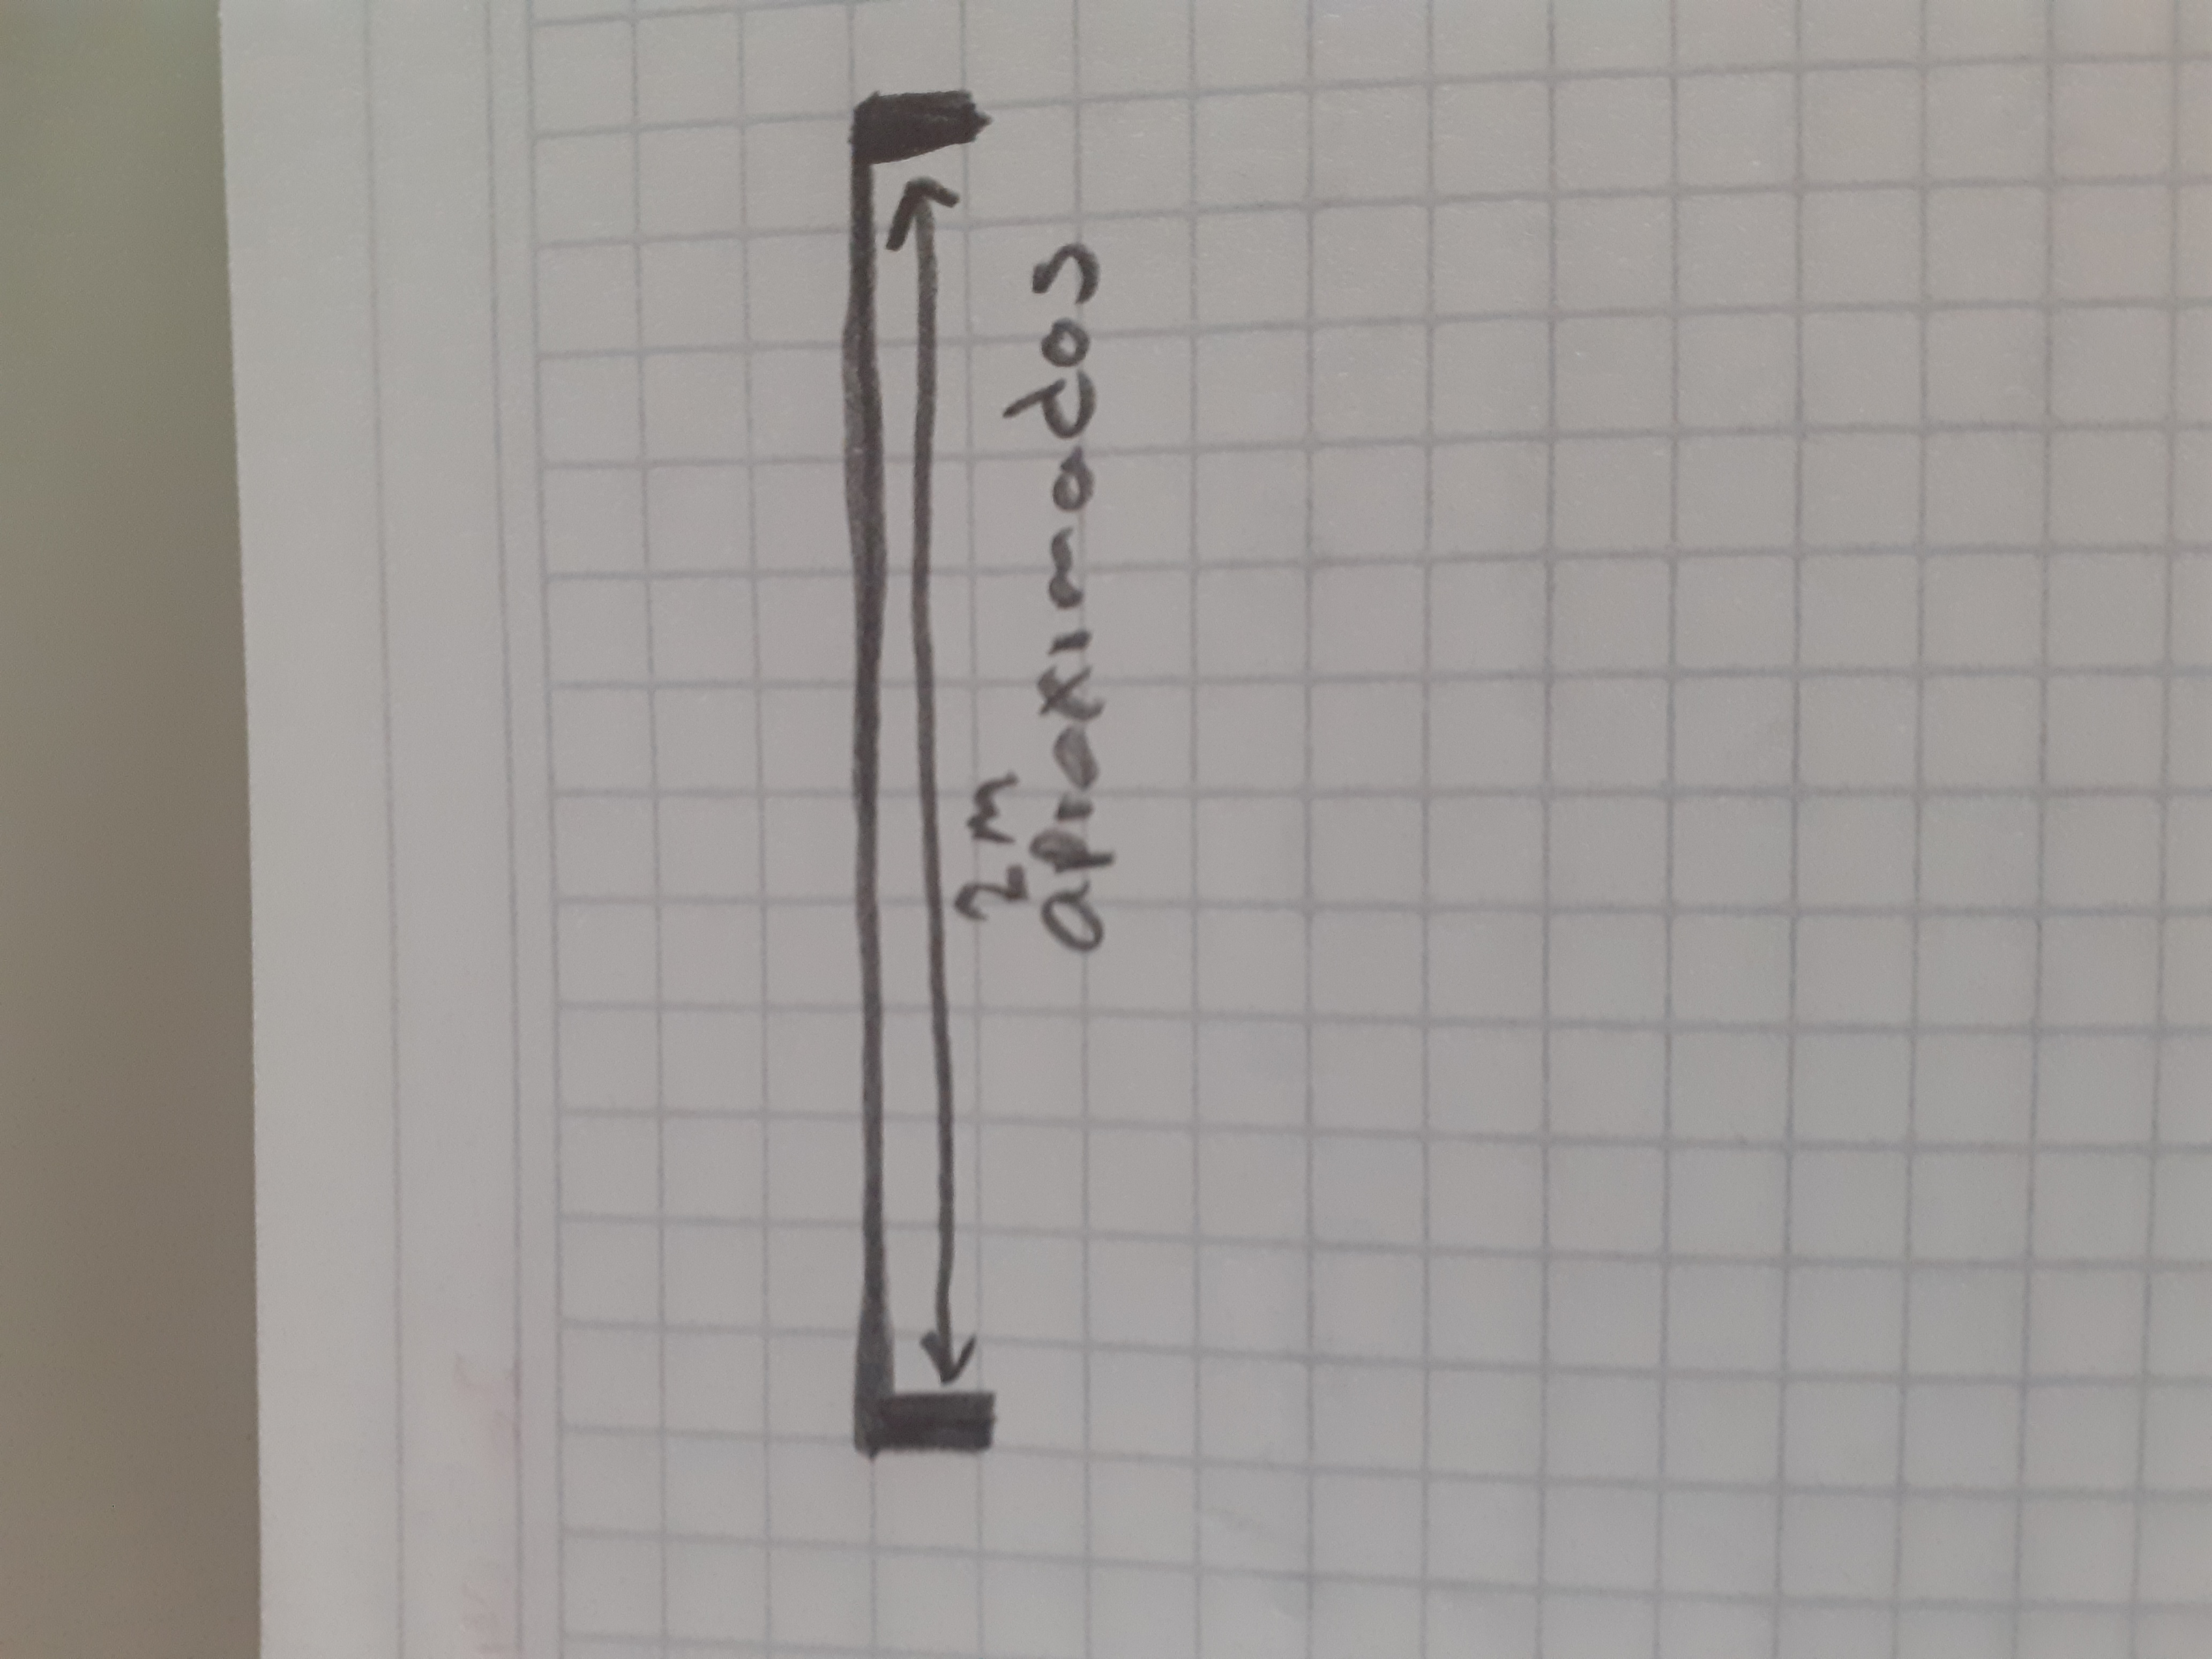 2 m
aproximados